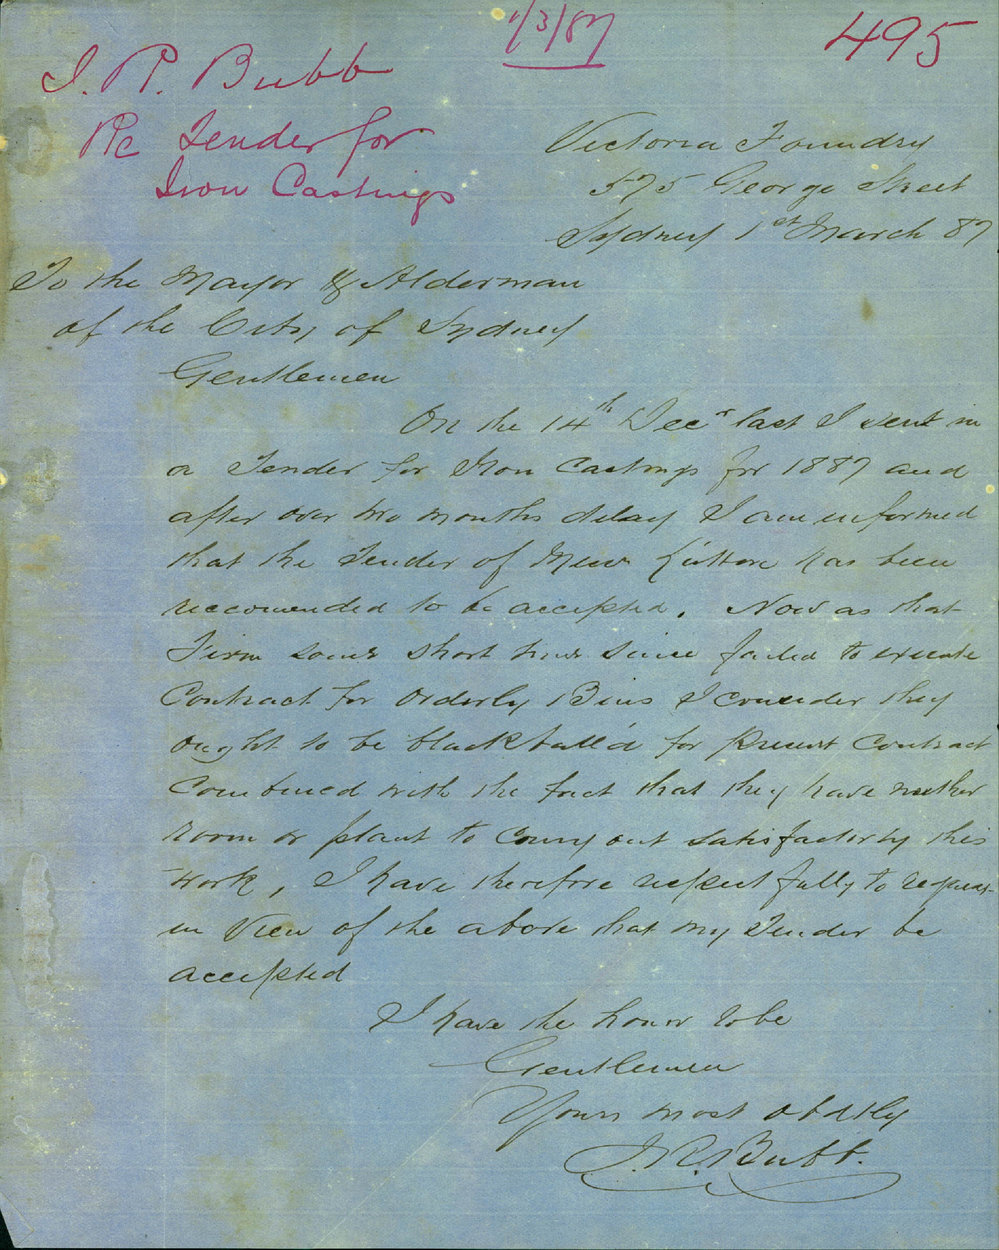 1/3/87
495
J. R. Bubb
Re Tender for
Iron Castings
Victoria Foundry
575 George Street
Sydney 1st March 87
To the Mayor & Alderman
of the City of Sydney
Gentlemen
On the 14th Decr last I sent in
a Tender for Iron Castings for 1887 and
after over two months delay I am informed
that the Tender of Mess has been
reccomended to be accepted. Now as that
Firm some short time since failed to execute
Contract for Orderly Bins I consider they
ought to be blackball'd for present Contract
Combined with the fact that they have neither
room or plant to carry out satisfactorly this
work, I have therefore respectfully to request
in View of the above that my Tender be
accepted
I have the honor to be
Gentlemen
Yours most obdtly
J. R. Bubb.